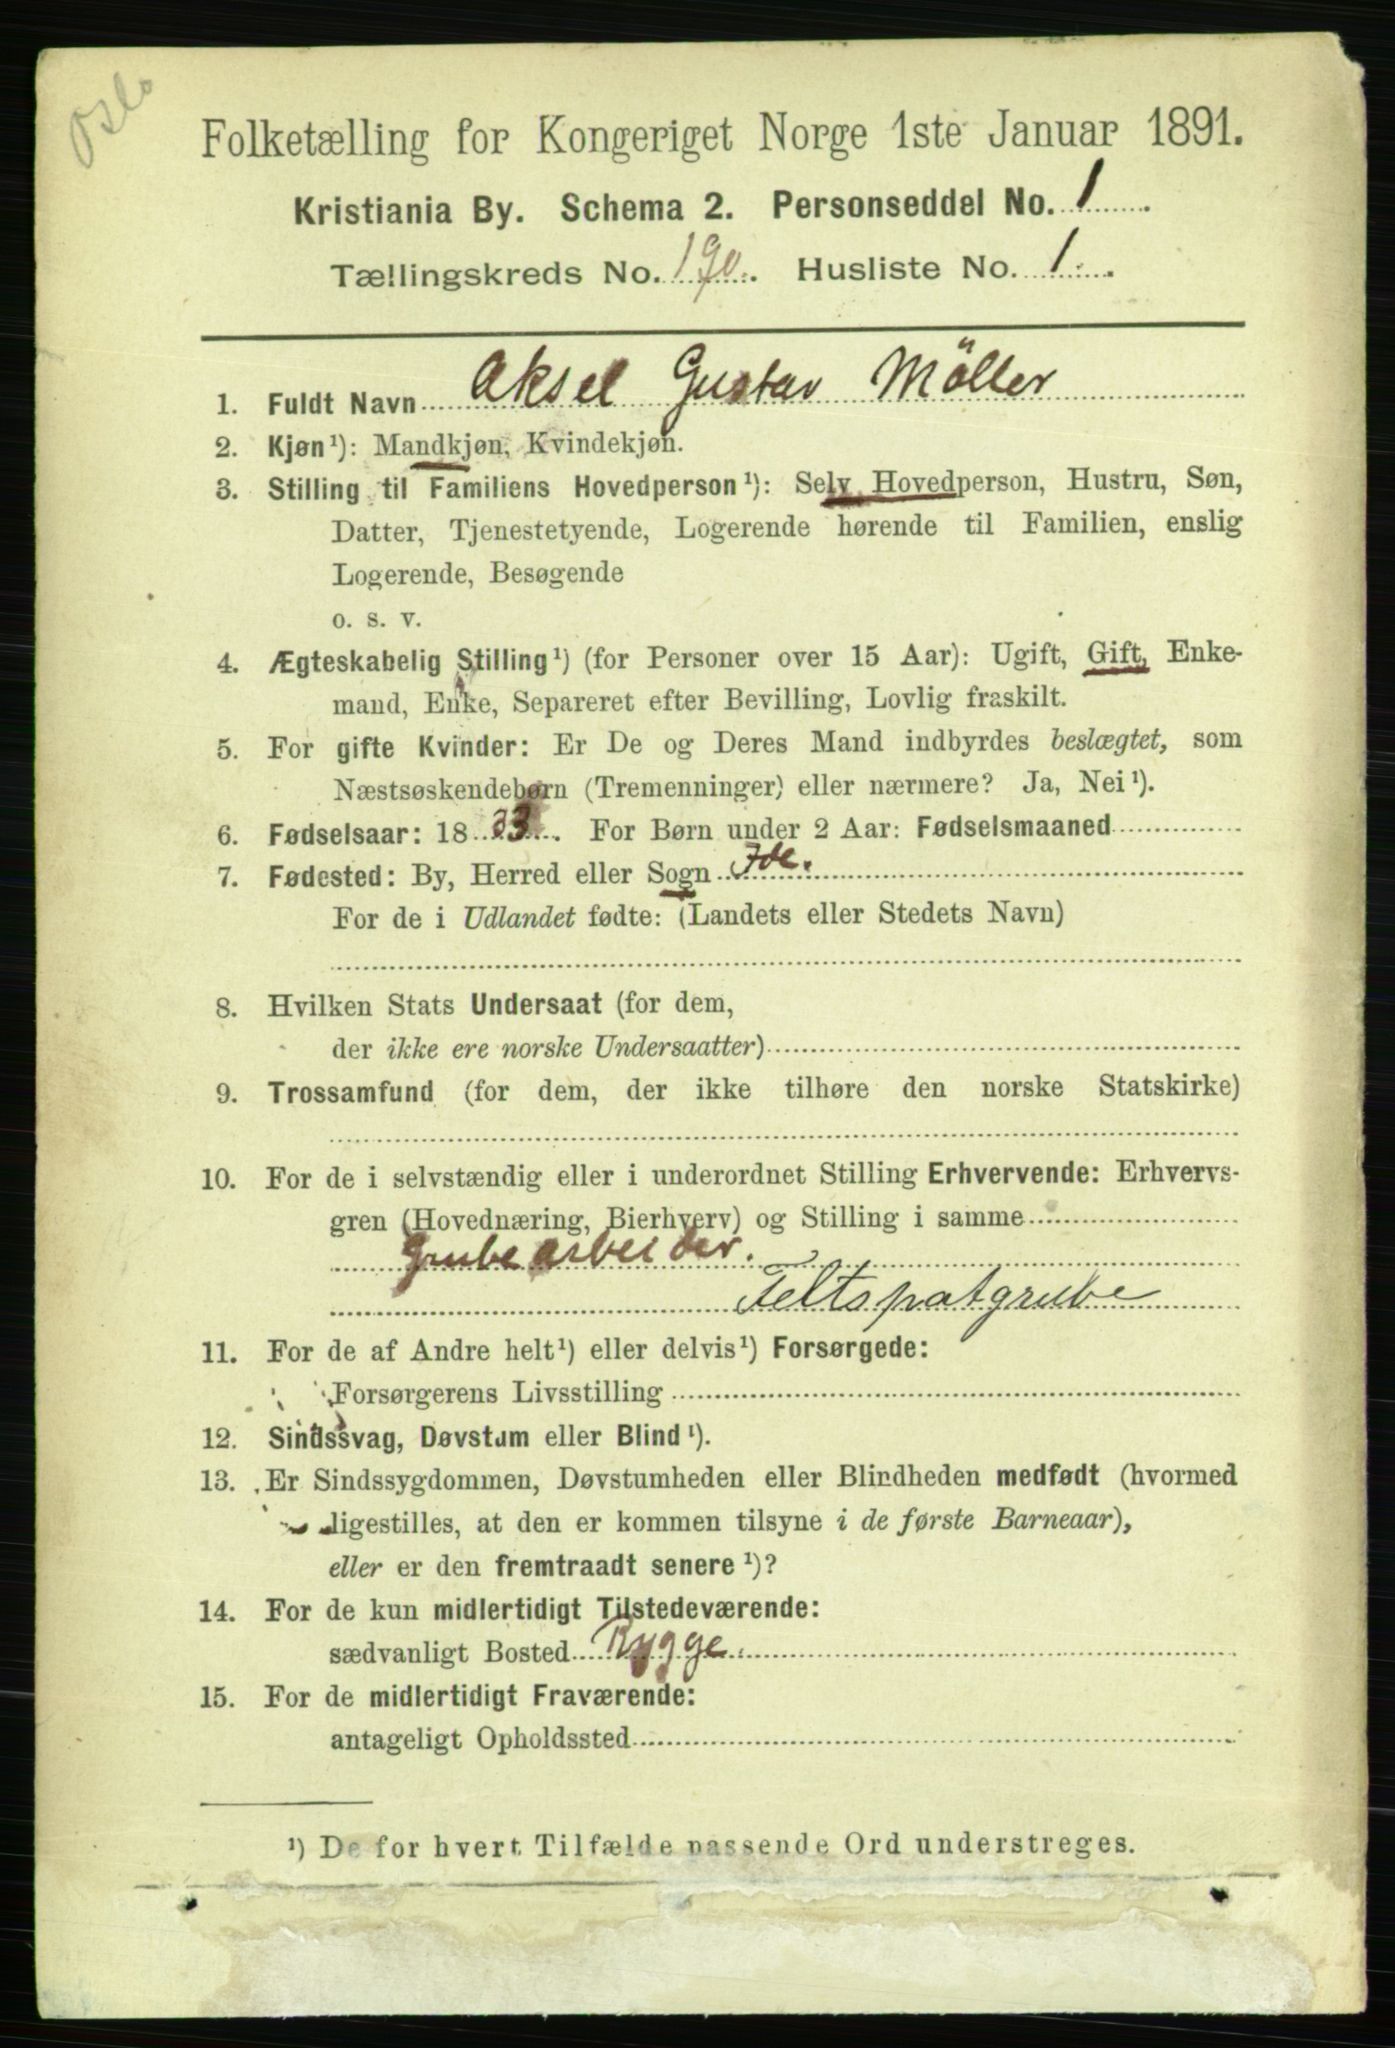 Oslo
Folketælling for Kongeriget Norge 1ste Januar 1891.
Kristiania By. Schema 2. Personseddel No. 1
Tællingskreds No. 190. Husliste No. 1.
1. Fuldt Navn Aksel Gustav Möller
2. Kjøn¹): Mandkjøn, Kvindekjøn.
3. Stilling til Familiens Hovedperson¹): Selv Hovedperson, Hustru, Søn,
Datter, Tjenestetyende, Logerende hørende til Familien, enslig
Logerende, Besøgende
o. s. v.
4. Ægteskabelig Stilling¹) (for Personer over 15 Aar): Ugift, Gift, Enke-
mand, Enke, Separeret efter Bevilling, Lovlig fraskilt.
5. For gifte Kvinder: Er De og Deres Mand indbyrdes beslægtet, som
Næstsøskendebørn (Tremenninger) eller nærmere? Ja, Nei¹).
6. Fødselsaar: 1833. For Børn under 2 Aar: Fødselsmaaned
7. Fødested: By, Herred eller Sogn Ide.
For de i Udlandet fødte: (Landets eller Stedets Navn)
8. Hvilken Stats Undersaat (for dem,
der ikke ere norske Undersaatter)
9. Trossamfund (for dem, der ikke tilhøre den norske Statskirke)
10. For de i selvstændig eller i underordnet Stilling Erhvervende: Erhvervs-
gren (Hovednæring, Bierhverv) og Stilling i samme
Grubearbeider.
Feltspatgrube
11. For de af Andre helt¹) eller delvis¹) Forsørgede:
Forsørgerens Livsstilling
12. Sindssvag, Døvstum eller Blind¹).
13. Er Sindssygdommen, Døvstumheden eller Blindheden medfødt (hvormed
ligestilles, at den er kommen tilsyne i de første Barneaar),
eller er den fremtraadt senere¹)?
14. For de kun midlertidigt Tilstedeværende:
sædvanligt Bosted Rygge.
15. For de midlertidigt Fraværende:
antageligt Opholdssted
¹) De for hvert Tilfælde passende Ord understreges.